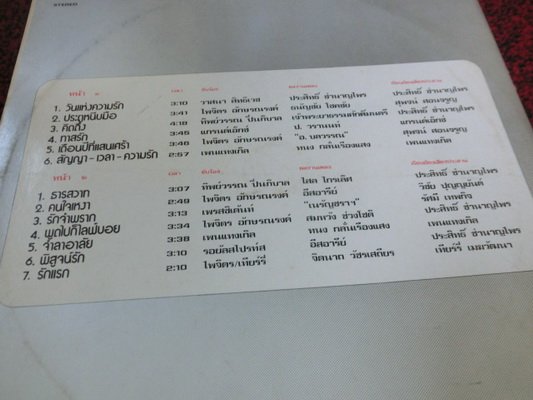 STEREO
หน้า ๑ เวลา ขับร้อง
1. วันแห่งความรัก 3:10 วาสนา สิทธิเวช ประสิทธิ์ ชำนาญไพร
2. ประตูหนีบมือ 3:41 ไพจิตร อักษรณรงค์ ธนัญชัย โชคชัย สุพจน์ สอนจรูญ
3. คิดถึง 4:18 ทิพย์วรรณ ปิ่นภิบาล เจ้าพระยาธรรมศักดิ์มนตรี ประสิทธิ์ ชำนาญไพร
4. ทาสรัก 3:45 แกรนด์เอ็กซ์ ป. วรานนท์ แกรนด์เอ็กซ์
5. เดือนปีที่แสนเศร้า 3:46 ไพจิตร อักษรณรงค์ สุพจน์ สอนจรูญ
6. สัญญา - เวลา - ความรัก 2:57 เพนแทงเกิล ทนง กลั่นเรืองแสง เพนแทงเกิล
หน้า ๒ เวลา ขับร้อง
1. ธารสวาท 3:07 ทิพย์วรรณ ปิ่นภิบาล ไสล ไกรเลิศ ประสิทธิ์ ชำนาญไพร
2. คนใจเหงา 2:49 ไพจิตร อักษรณรงค์ อิศอารีย์ วิชัย ปุญญะยันต์
3. รักจำพราก 3:13 เพรสซิเด้นท์ "เนรัญชรา"
4. พูดไปก็ไลฟ์บอย 3:34 ไพจิตร อักษรณรงค์ สมหวัง ประสิทธิ์ ชำนาญไพร
5. จำลาอาลัย 3:38 เพนแทงเกิล ทนง กลั่นเรืองแสง เพนแทงเกิล
6. พิสูจน์รัก 3:10 รอยัลสไปรท์ส อิศอารีย์ ประสิทธิ์ ชำนาญไพร
7. รักแรก 2:10 ไพจิตร/เทียร์รี่ จิตนาถ วัชรเสถียร เทียร์รี่ เมฆวัฒนา